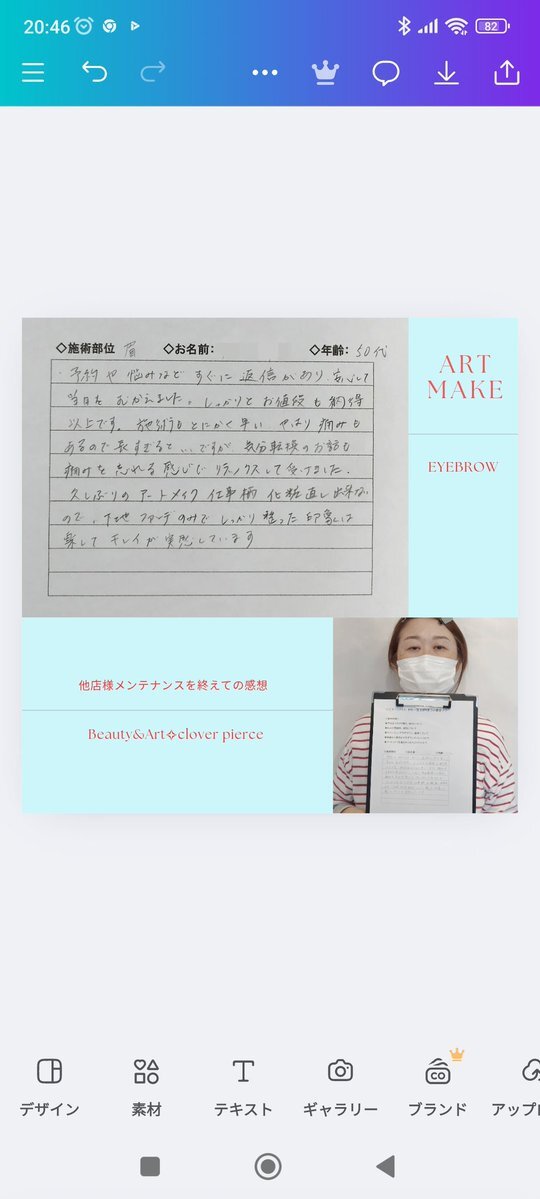 20:46
82
◇施術部位 眉 ◇お名前: ◇年齢: 50代
・予約や悩みなどすぐに返信があり、安心して
当日をむかえました。しっかりとお値段も納得
以上です。施術もとにかく早い、やはり痛みも
あるので長すぎると...ですが気分転換のお話も
痛みを忘れる感じでリラックスして受けました。
久しぶりのアートメイク 仕事柄 化粧直し出来ない
ので、下地ファンデのみでしっかり整った印象は
楽してキレイが実現しています
ART
MAKE
EYEBROW
他店様メンテナンスを終えての感想
Beauty&Art✧clover pierce
デザイン
素材
テキスト
ギャラリー
CO
ブランド
アップロ